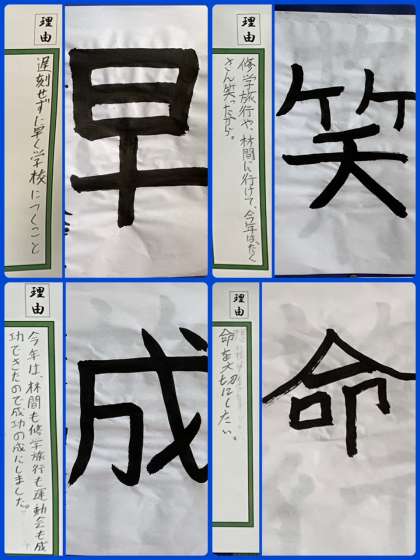 理由
遅刻せずに早く学校につくこと
早
理由
修学旅行や、林間に行けて、今年は、たく
さん笑ったから。
笑
理由
今年は林間も修学旅行も運動会も成
功できたので成功の成にしました。
成
理由
命を大切にしたい。
命